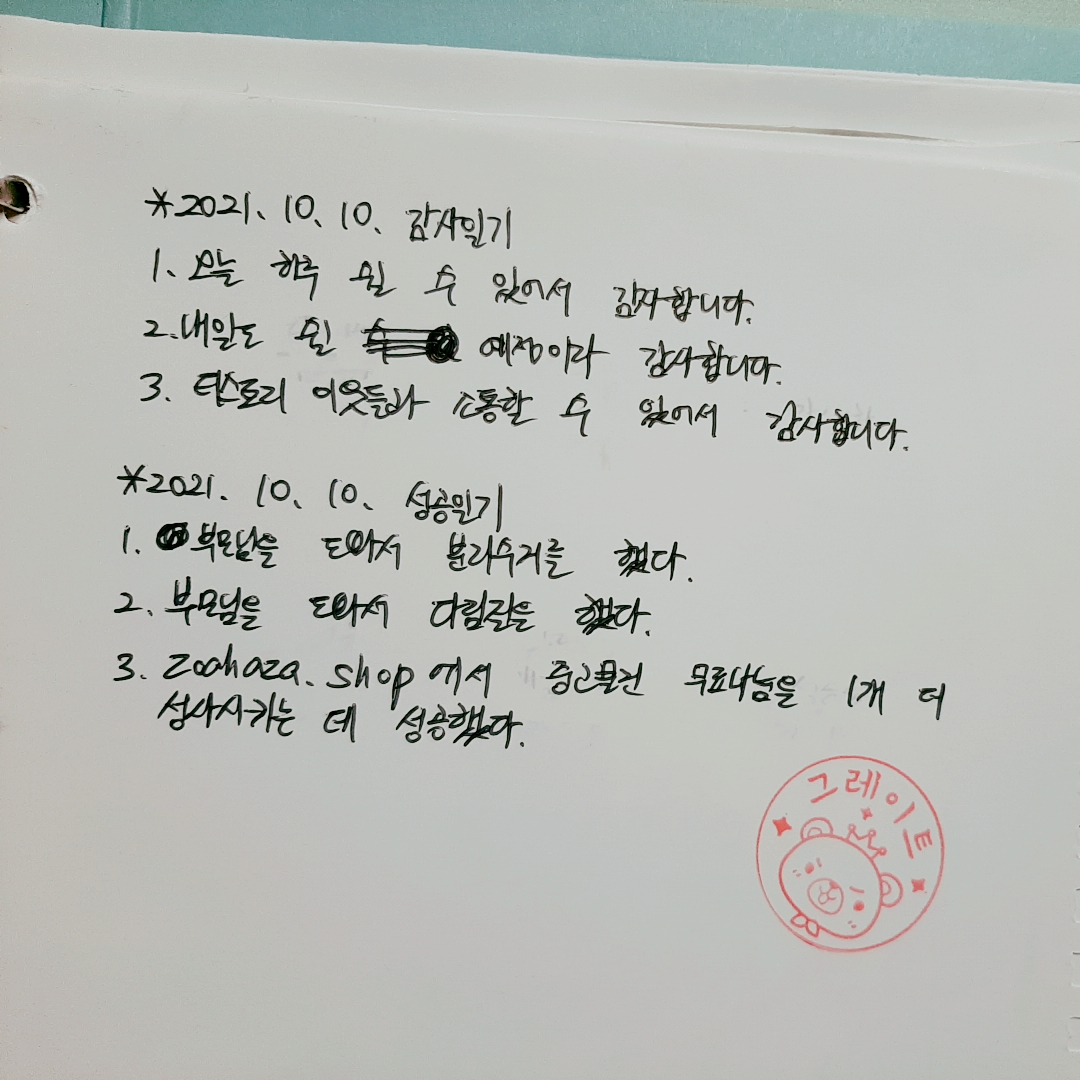 *2021. 10. 10. 감사일기
1. 오늘 하루 쉴 수 있어서 감사합니다.
2. 내일도 쉴 예정이라 감사합니다.
3. 티스토리 이웃들과 소통할 수 있어서 감사합니다.
*2021. 10. 10. 성공일기
1. 부모님을 도와서 분리수거를 했다.
2. 부모님을 도와서 다림질을 했다.
3. zoahaza.shop에서 중고물건 무료나눔을 1개 더
성사시키는 데 성공했다.
그레이트